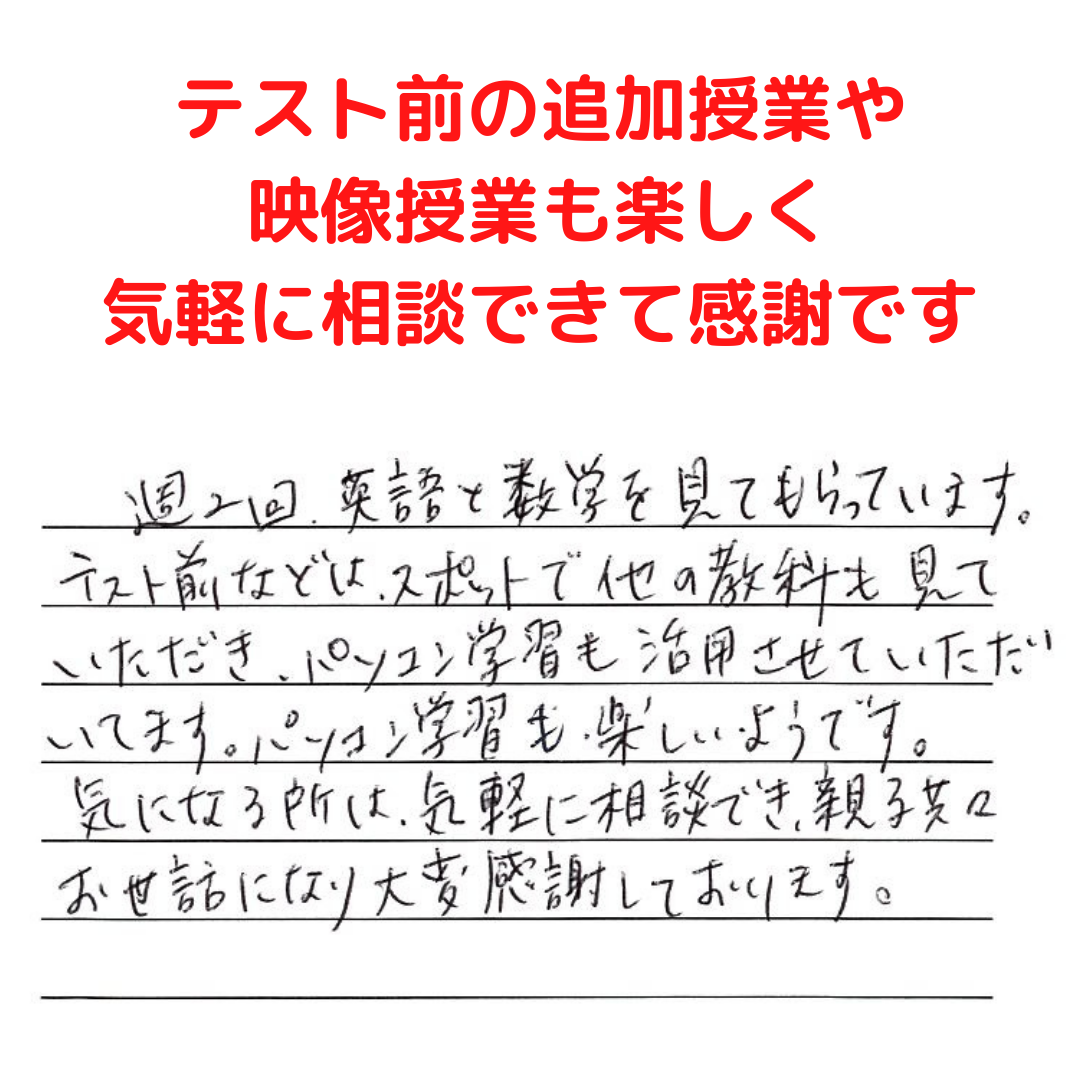 テスト前の追加授業や
映像授業も楽しく
気軽に相談できて感謝です
週2回、英語と数学を見てもらっています。
テスト前などは、スポットで他の教科も見て
いただき、パソコン学習も活用させていただ
いてます。パソコン学習も、楽しいようです。
気になる所は、気軽に相談でき、親子共々
お世話になり大変感謝しております。